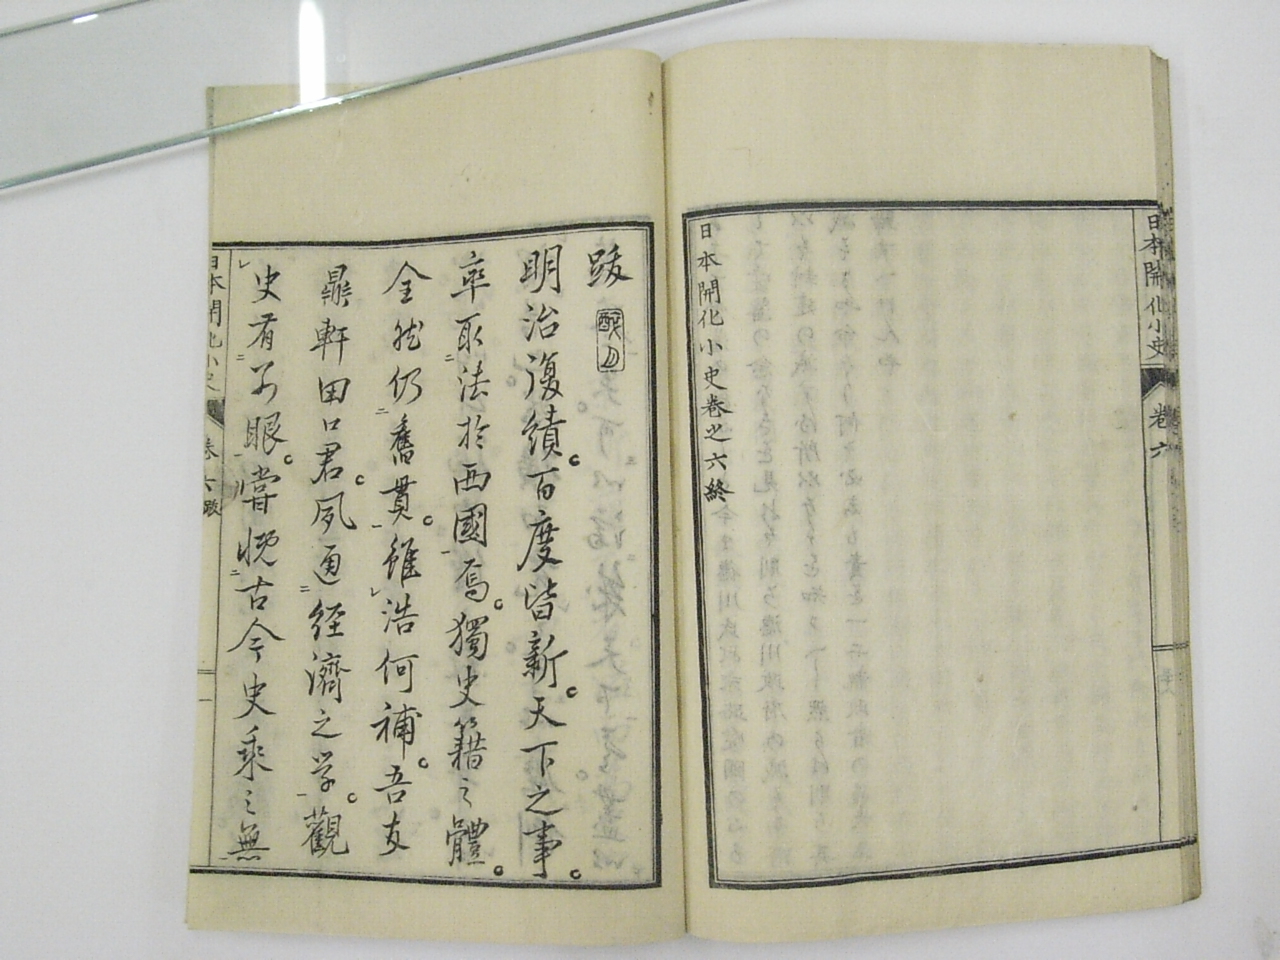 日本開化小史 卷六
日本開化小史卷之六終
跋
明治復績。百度皆新。天下之事。
率取法於西國焉。獨史籍之體。
全然仍舊貫。雖浩何補。吾友
鼎軒田口君。夙通經濟之学。觀
史有別眼。嘗慨古今史乘之無
日本開化小史 卷六跋 一